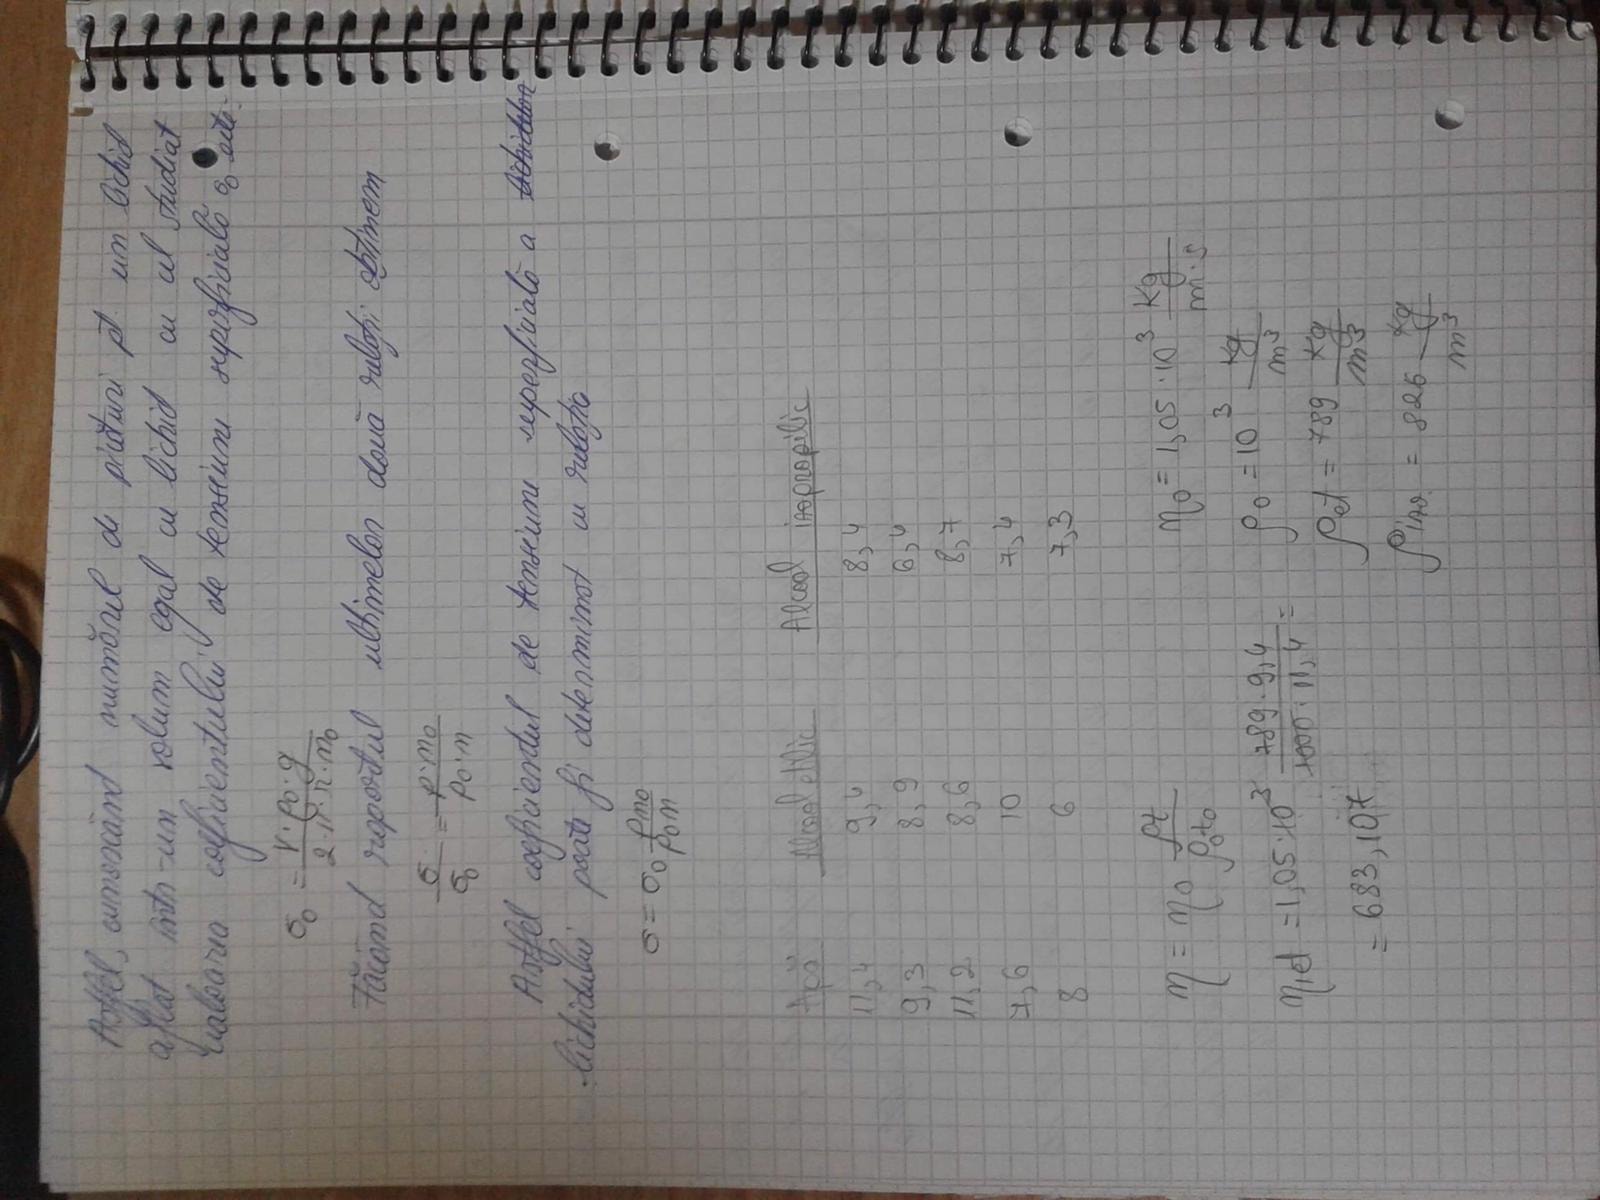 Astfel, cunoscând numărul de picături pt. un lichid
aflat într-un volum egal cu lichid cu cel studiat
valoarea coeficientului de tensiune superficială σ₀ este.
σ₀ = V·ρ₀·g / 2·π·r·n₀
Făcând raportul ultimelor două relații obținem
σ/σ₀ = ρ·n₀/ρ₀·n
Astfel coeficientul de tensiune superficială a
lichidului poate fi determinat cu relația
σ = σ₀ ρn₀/ρ₀n
Apă Alcool etilic Alcool izopropilic
11,4 9,4 8,4
9,3 8,9 6,4
11,2 8,6 8,7
7,6 10 7,4
8 6 7,3
η = η₀ ρt/ρ₀t₀ η₀ = 1,05·10³ kg/m·s
η₁et = 1,05·10³ 789·9,4/1000·11,4 = ρ₀ = 10³ kg/m³
= 683,107 ρet = 789 kg/m³
ρizo. = 826 kg/m³